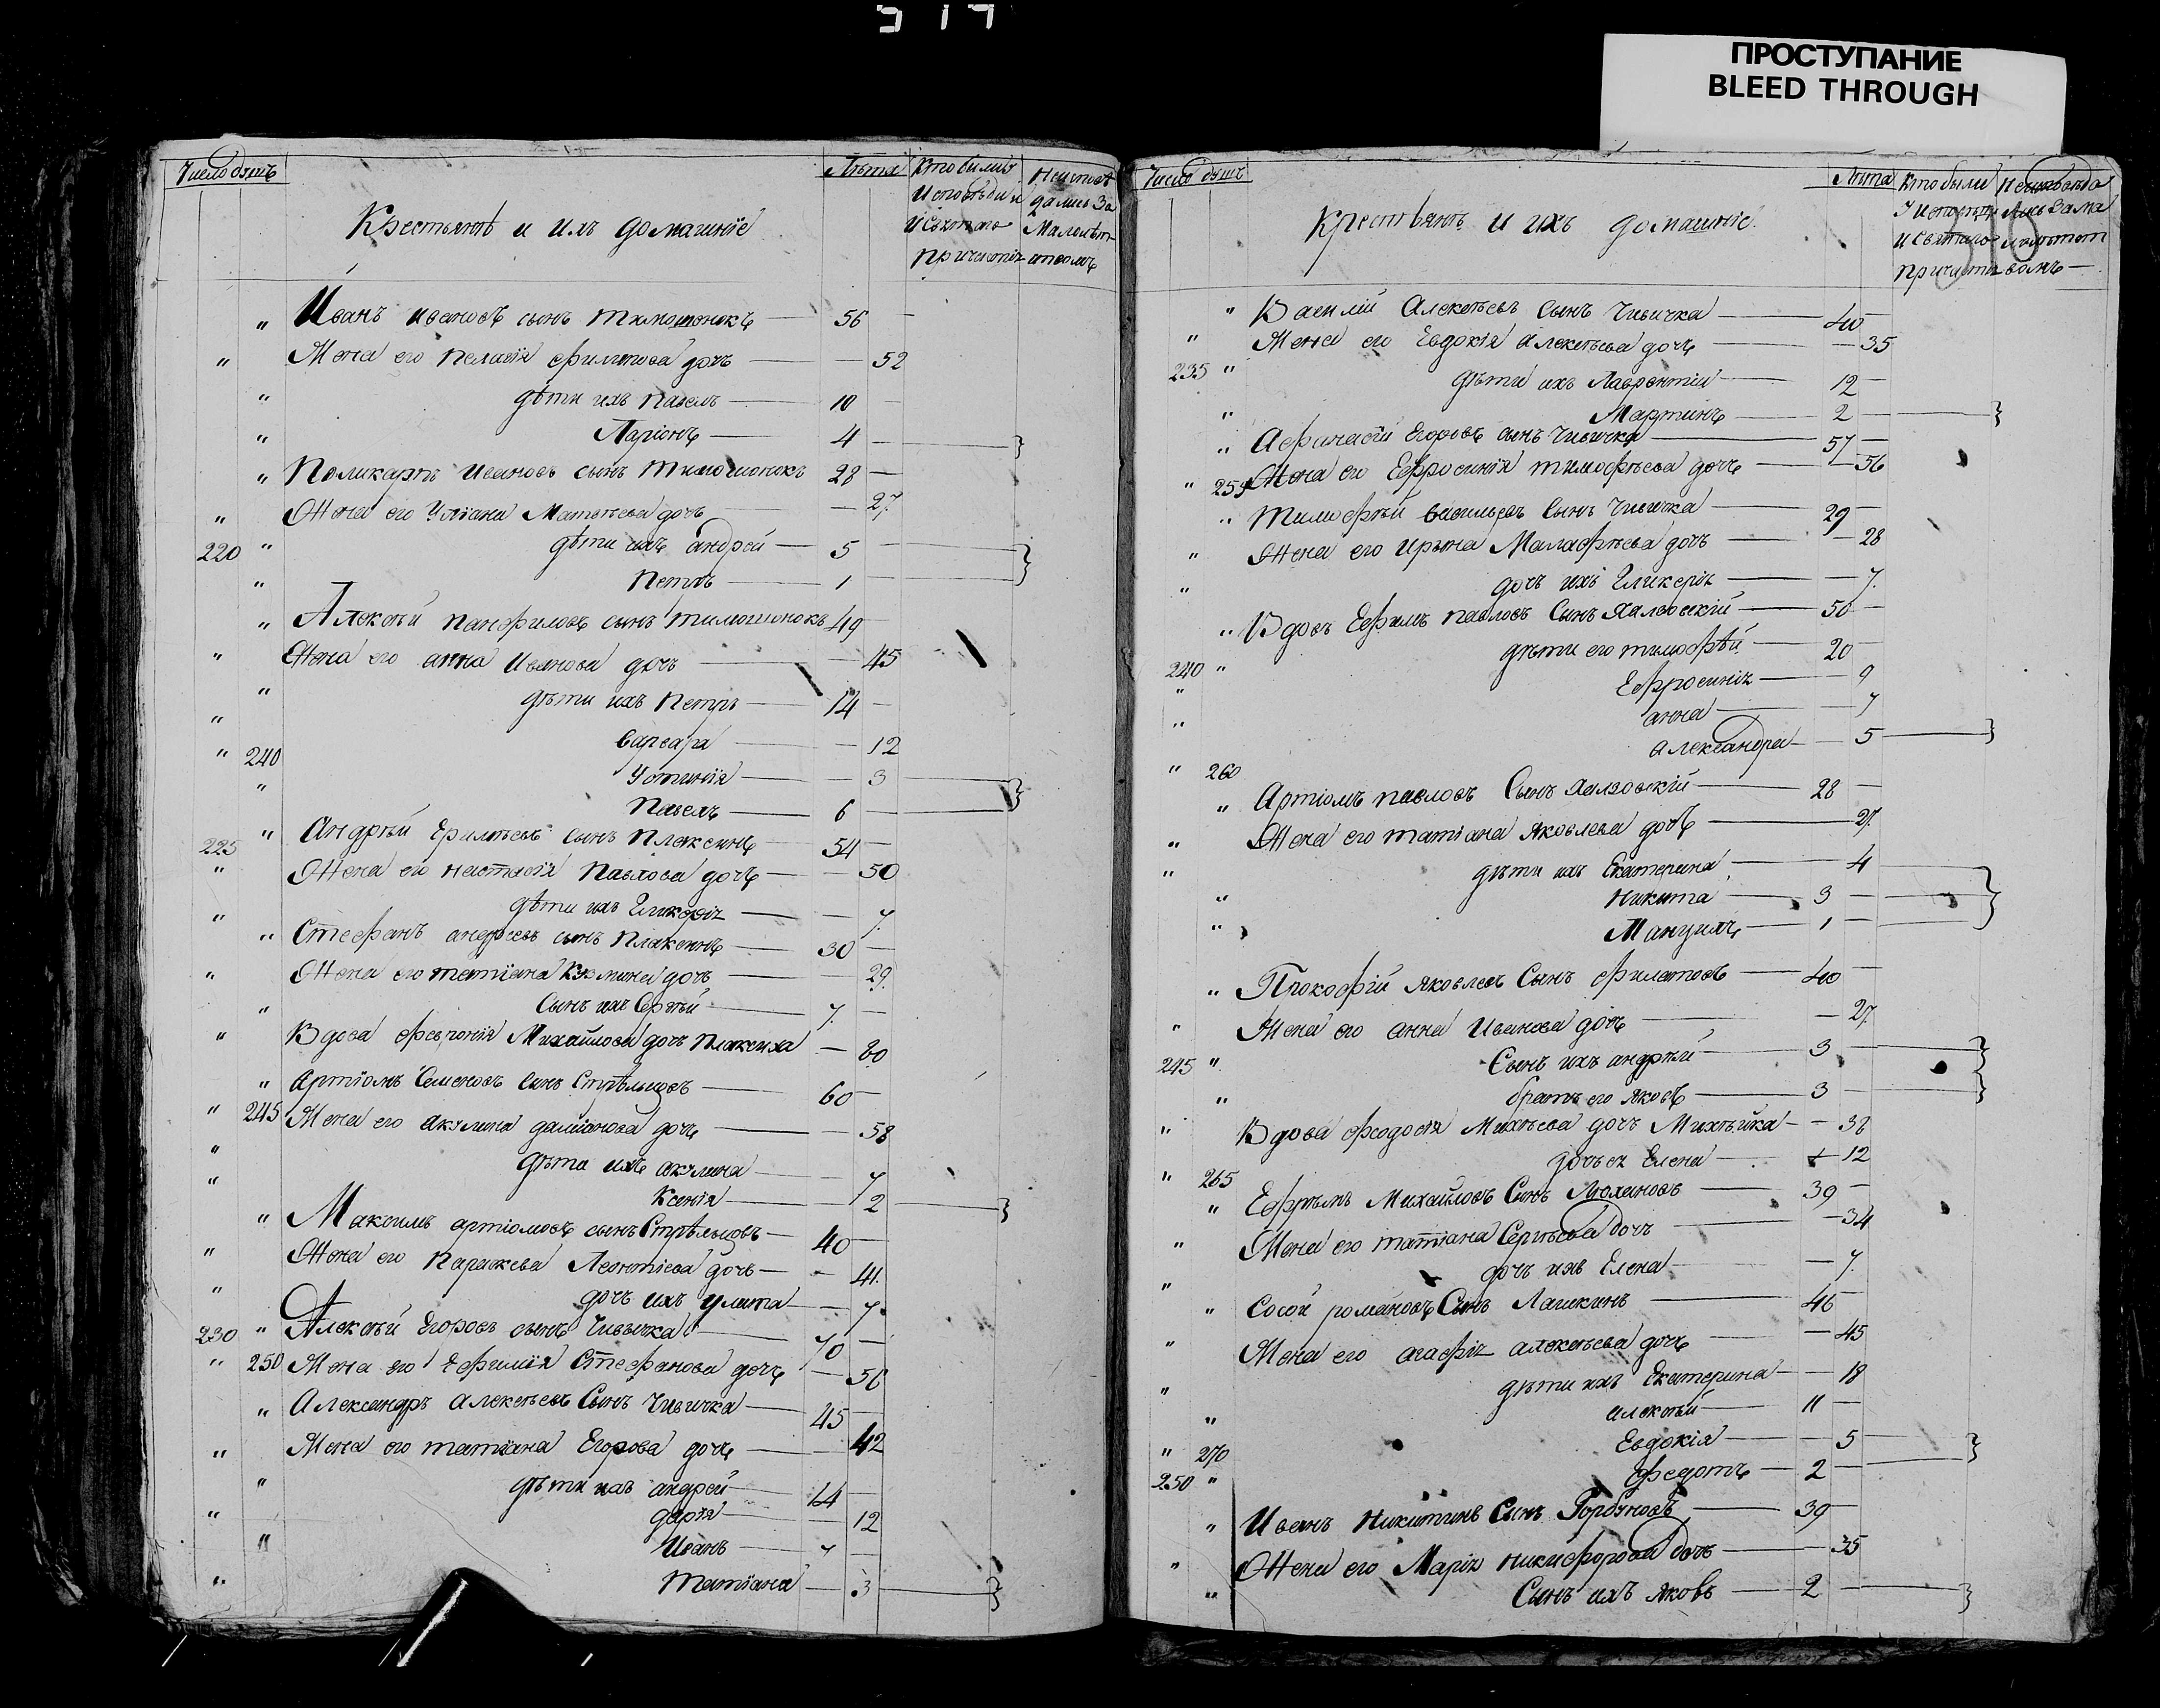 ПРОСТУПАНИЕ
BLEED THROUGH
Число душъ
Лѣта
Крестьянѣ и ихъ домашніе
Кто были у
Исповѣди и
и Святаго
Причастія
" Иванъ Ивановъ сынъ Тимошонокъ — 56 —
" Жена его Пелагія Филипова дочь — 52
" дѣти ихъ Павелъ — 10 —
" Ларіонъ — 4 —
" Поликарпъ Ивановъ сынъ Тимошонокъ 28 —
" Жена его Уліана Матвѣева дочь — 27.
220 " дѣти ихъ андрей — 5 —
" Петръ — 1 —
" Алексѣй Панфиловъ сынъ Тимошонокъ 49
" Жена его анна Иванова дочь — 45
" дѣти ихъ Петръ — 14 —
" варвара — 12
" 240 Устинія — 3
" Павелъ — 6 —
225 " Андрѣй сынъ Плаксинъ — 54 —
" Жена его настасія Павлова дочь — 50
" дѣти ихъ Гликерія — 7.
" Стефанъ андреевъ сынъ Плаксинъ — 30 —
" Жена его татіана Кузмина дочь — 29.
" Сынъ ихъ Сергѣй — 7. —
" Вдова Февронія Михайлова дочь Плаксиха — 80
" Артіомъ Семеновъ сынъ Стрѣльцовъ — 60 —
" 245 Жена его акулина даміанова дочь — 58
" дѣти ихъ акулина — 7
" Ксенія — 2
" Максимъ артіомовъ сынъ Стрѣльцовъ — 40 —
" Жена его Параскева Леонтіева дочь — 41.
" дочь ихъ Улита — 7
230 " Алексѣй Егоровъ сынъ Чивичка — 70 —
" 250 Жена его Ефимія Стефанова дочь — 56
" Александръ алексѣевъ Сынъ Чивичка — 45 —
" Жена его татіана Егорова дочь — 42
" дѣти ихъ андрей — 14 —
" дарія — 12
" Иванъ — 7 —
" Татіана — 3
Число душъ
Лѣта
Крестьянѣ и ихъ домашніе.
Кто были
У Исповѣди
и Святаго
Причастія
" Василій Алексѣевъ Сынъ Чивичка — 40 —
" Жена его Евдокія алексѣева дочь — 35
235 " дѣти ихъ Лаврентій — 12 —
" Мартинъ — 2 —
" Афанасій Егоровъ сынъ Чивичка — 57 —
" 255 Жена его Ефросинія тимофѣева дочь — 56
" Тимофѣй васильевъ Сынъ Чивичка — 29 —
" Жена его Ирына Малафѣева дочь — 28
" дочь ихъ Гликерія — 7.
" Вдовъ Ефимъ павловъ Сынъ — 50 —
240 " дѣти его тимофѣй — 20 —
" Ефросинія — 9
" анна — 7
" 260 александра — 5
" Артіомъ павловъ Сынъ — 28 —
" Жена его татіана Яковлева дочь — 27.
" дѣти ихъ Екатерина — 4
" Никита — 3 —
" Мануилъ — 1 —
" Прокофій Яковлевъ Сынъ Филатовъ — 40 —
" Жена его анна Иванова дочь — 27.
245 " Сынъ ихъ андрѣй — 3 —
" братъ его Яковъ — 3 —
" Вдова феодосія Михѣева дочь Михѣйка — 38
" 265 дочь ея Елена — 12
" Ефрѣмъ Михайловъ Сынъ — 39 —
" Жена его татіана Сергѣева дочь — 34
" дочь ихъ Елена — 7.
" Сосой романовъ Сынъ Лашкинъ — 46 —
" Жена его агафія алексѣева дочь — 45
" дѣти ихъ Екатерина — 18
" алексѣй — 11 —
" 270 Евдокія — 5
250 " Федотъ — 2 —
" Иванъ Никитинъ Сынъ Горбуновъ — 39 —
" Жена его Марія никифорова дочь — 35
" Сынъ ихъ Яковъ — 2 —